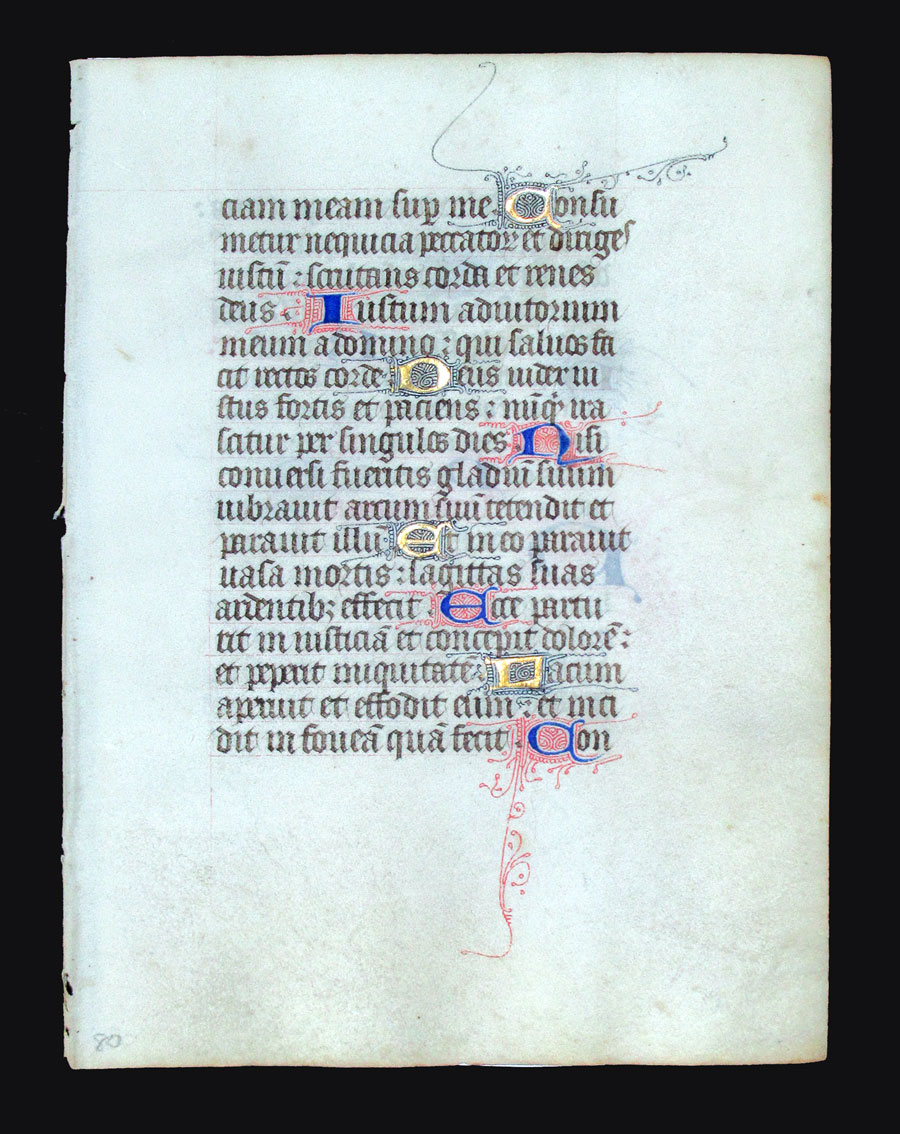 ciam meam sup̱ me : Consu
metur nequicia peccatoꝝ et diriges
iustū : scrutans corda et renes
deus Iustum adiutorium
meum a domino : qui saluos fa
cit rectos corde : Deus iudex iu
stus fortis et paciens : nūq̄ ira
scitur per singulos dies : Nisi
conuersi fueritis gladiū suum
uibrauit arcum suū tetendit et
parauit illū : Et in eo parauit
uasa mortis : sagittas suas
ardentibꝫ effecit : Ecce partu
rit in iusticiā et concepit dolorē :
et peperit iniquitatē : Lacum
aperuit et effodit eum : et inci
dit in foueā quā fecit : Con
80